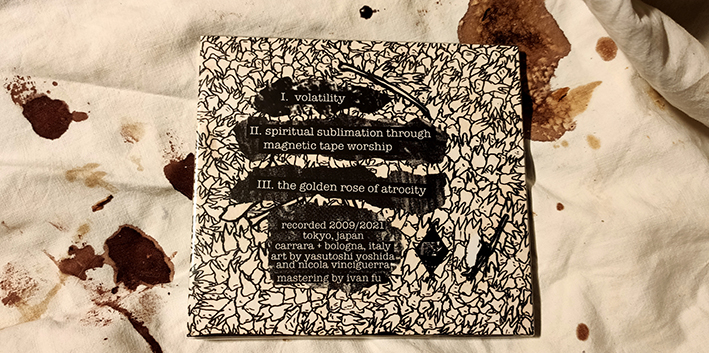 I. volatility
II. spiritual sublimation through
magnetic tape worship
III. the golden rose of atrocity
recorded 2009/2021
tokyo, japan
carrara + bologna, italy
art by yasutoshi yoshida
and nicola vinciguerra
mastering by ivan fu